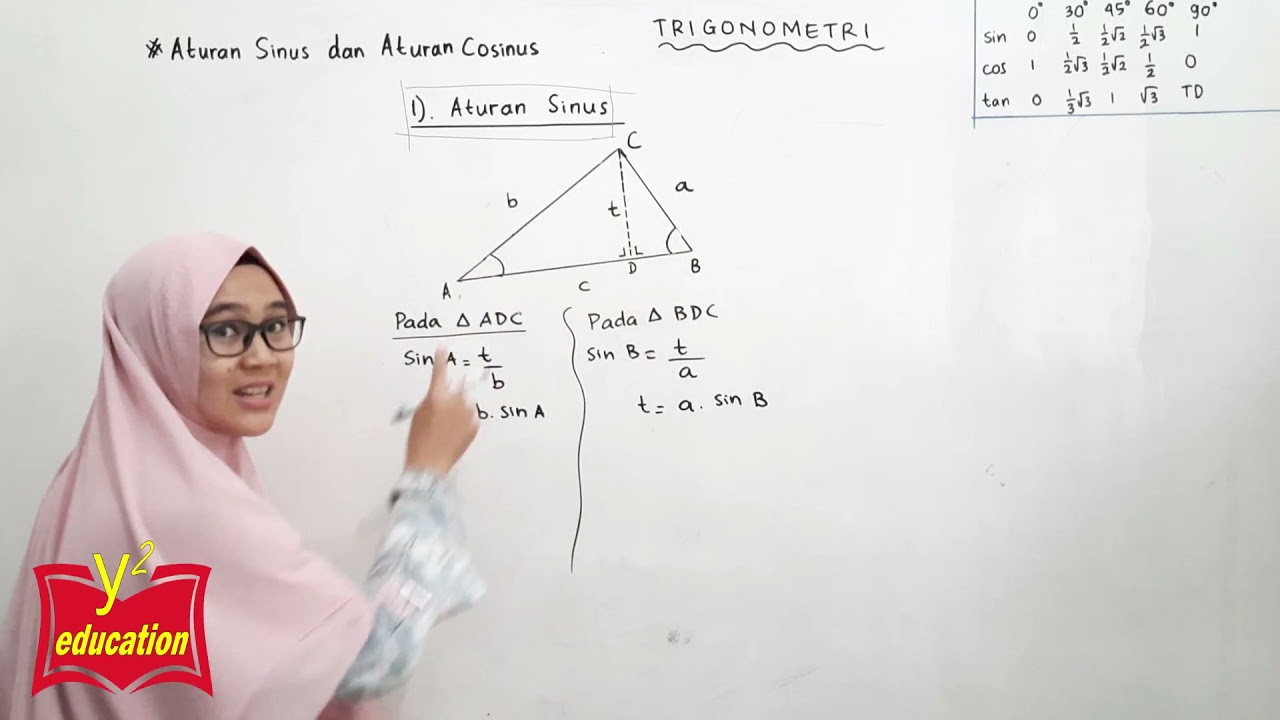 TRIGONOMETRI
* Aturan Sinus dan Aturan Cosinus
0° 30° 45° 60° 90°
sin 0 1/2 1/2√2 1/2√3 1
cos 1 1/2√3 1/2√2 1/2 0
tan 0 1/3√3 1 √3 TD
1). Aturan Sinus
C
b
a
t
A
D
B
c
Pada △ ADC
Sin A = t/b
b. sin A
Pada △ BDC
sin B = t/a
t = a. sin B
y²
education